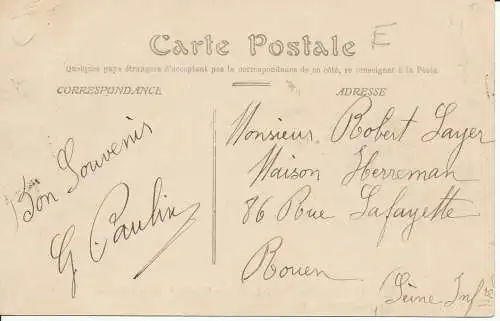 Carte Postale
E
Quelques pays étrangers n'acceptant pas la correspondance de ce côté, se renseigner à la Poste
CORRESPONDANCE
ADRESSE
Bon Souvenir
G. Paulin
Monsieur Robert Layer
Maison Herreman
86 Rue Lafayette
Rouen
(Seine Infre)